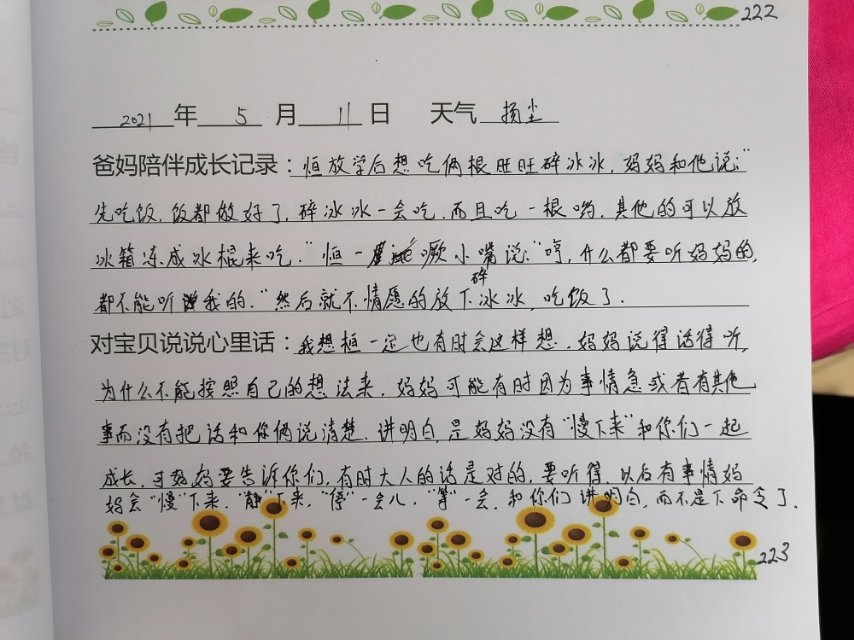 222
2021 年 5 月 11 日 天气 扬尘
爸妈陪伴成长记录：恒放学后想吃俩根旺旺碎冰冰，妈妈和他说："
先吃饭，饭都做好了，碎冰冰一会吃，而且吃一根哟，其他的可以放
冰箱冻成冰棍来吃。"恒一 噘小嘴说："哼，什么都要听妈妈的，
都不能听我的。"然后就不情愿的放下碎冰冰，吃饭了．
对宝贝说说心里话：我想恒一定也有时会这样想．妈妈说得话得听，
为什么不能按照自己的想法来．妈妈可能有时因为事情急或者有其他
事而没有把话和你俩说清楚．讲明白，是妈妈没有"慢下来"和你们一起
成长，可妈妈要告诉你们，有时大人的话是对的，要听得．以后有事情妈
妈会"慢"下来，"静"下来，"停"一会儿，"等"一会，和你们讲明白，而不是下命令了．
223